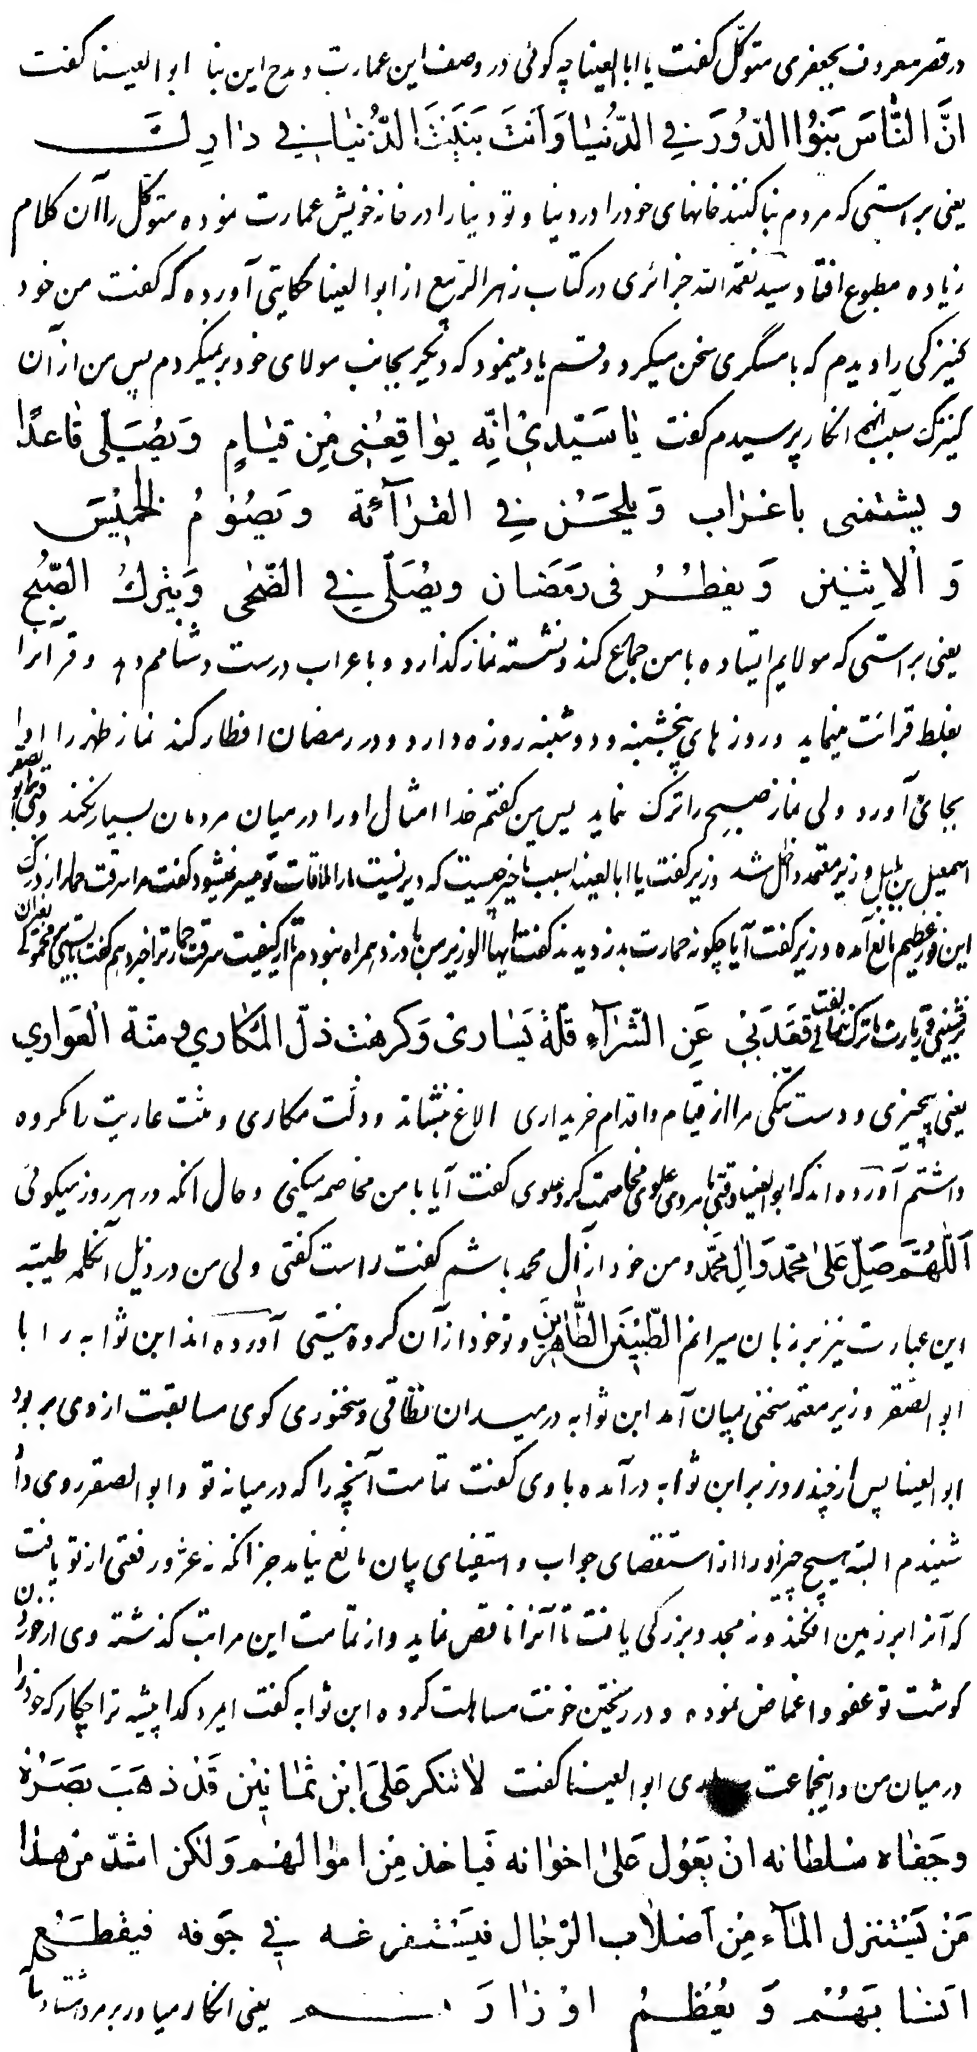 در قصر معروف بجعفری متوکّل گفت یا ابا العینا چه گوئی در وصف این عمارت و مدح این بنا ابو العینا گفت
انَّ النّاسَ بَنَوُا الدّورَ فِی الدّنیا وَ اَنتَ بَنَیتَ الدّنیا فی دارِكَ
یعنی براستی که مردم بنا کنند خانهای خود را در دنیا و تو دنیا را در خانه خویش عمارت نموده متوکّل را آن کلام
زیاده مطبوع افتاد سید نعمة الله جزائری در کتاب زهر الرّبیع از ابو العینا حکایتی آورده که گفت من خود
کنیزکی را دیدم که با مسگری سخن میکرد و قسم یاد مینمود که دیگر بجانب مولای خود بر نمیگردم پس من از آن
کنیزک سبب انکار پرسیدم گفت یا سَیّدی انّه یواقِعُنی مِن قیامٍ وَ یصَلّی قاعدًا
و یشتمنی باعراب وَ یلحَنُ فی القرآءَة و یَصُومُ الخمیسَ
وَ الاِثنین وَ یفطِرُ فی رَمَضان و یُصَلّی فی الضّحی وَ یترك الصّبح
یعنی براستی که مولایم ایستاده با من جماع کند و نشسته نماز گذارد و باعراب درست دشنامم دهد و قرآنرا
بغلط قرائت مینماید و روزهای پنجشنبه و دوشنبه روزه دارد و در رمضان افطار کند نماز ظهر را ادا
بجای آورد ولی نماز صبح را ترک نماید پس من گفتم خدا امثال او را در میان مردمان بسیار نکند وقتی بر ابو الصقر
اسمعیل بن بلبل وزیر معتمد داخل شد وزیر گفت یا ابا العینا سبب تاخیر چیست که دیر نیست ما را ملاقات تو میسر نمیشود گفت مرا سرقت حمار از درک
این فوز عظیم مانع آمده وزیر گفت آیا چگونه حمارت بدزدیدند گفت ایّها الوزیر من با دزد همراه نبودم تا از کیفیت سرقت حمار ترا خبر دهم گفت
فقعَدَ بی عَن الشّرآءِ قلّة یَساری وَ کرهت ذلّ المکاری و منّة العَواری
یعنی بیچیزی و دست تنگی مرا از قیام و اقدام خریداری الاغ بنشاند و ذلّت مکاری و منّت عاریت را مکروه
داشتم آورده اند که ابو العینا وقتی با مردی علوی مخاصمت کرد علوی گفت آیا با من مخاصمه میکنی و حال آنکه در هر روز میگوئی
اَللّهُمَّ صَلِّ عَلی محمّد وَ الِ محمّد و من خود از آل محمد باشم گفت راست گفتی ولی من در ذیل آنکلمه طیبّه
این عبارت نیز بر زبان میرانم الطّیّبینَ الطّاهرینَ و تو خود از آن گروه نیستی آورده اند ابن ثوابه را با
ابو الصّقر وزیر معتمد سخنی بمیان آمد ابن ثوابه در میدان نطّاقی و سخنوری گوی مسابقت از وی بر بود
ابو العینا پس از چند روز بر ابن ثوابه درآمده با وی گفت تمامت آنچه را که در میانه تو و ابو الصقر روی داد
شنیدم البته هیچ چیز او را از استقصای جواب و استیفای بیان مانع نیامد جز آنکه نه عزّ و رفعتی از تو یافت
که آنرا بر زمین افکند و نه مجد و بزرگی یافت تا آنرا ناقص نماید و از تمامت این مراتب گذشته وی از خوردن
گوشت تو عفو و اغماض نموده و در ریختن خونت مساهلت کرده ابن ثوابه گفت ایمرد گدا پیشه ترا چکار که خود را
در میان من و اینجماعت ابو العینا گفت لا تنکر عَلَی ابن ثمانین قَد ذهَبَ بَصَرُه
و جَفاه سُلطانه ان یَعُول عَلی اخوانه فیاخذ مِن اموالهُم وَ لکن اشدّ مِن هذا
مَن یَستَنزل المآء مِن اَصلاب الرّجال فیَستَفرغه فی جَوفه فیقطَعُ
انسابَهُم وَ یعُظمُ اوزارَهُم یعنی انکار میاور بر مرد هشتاد ساله